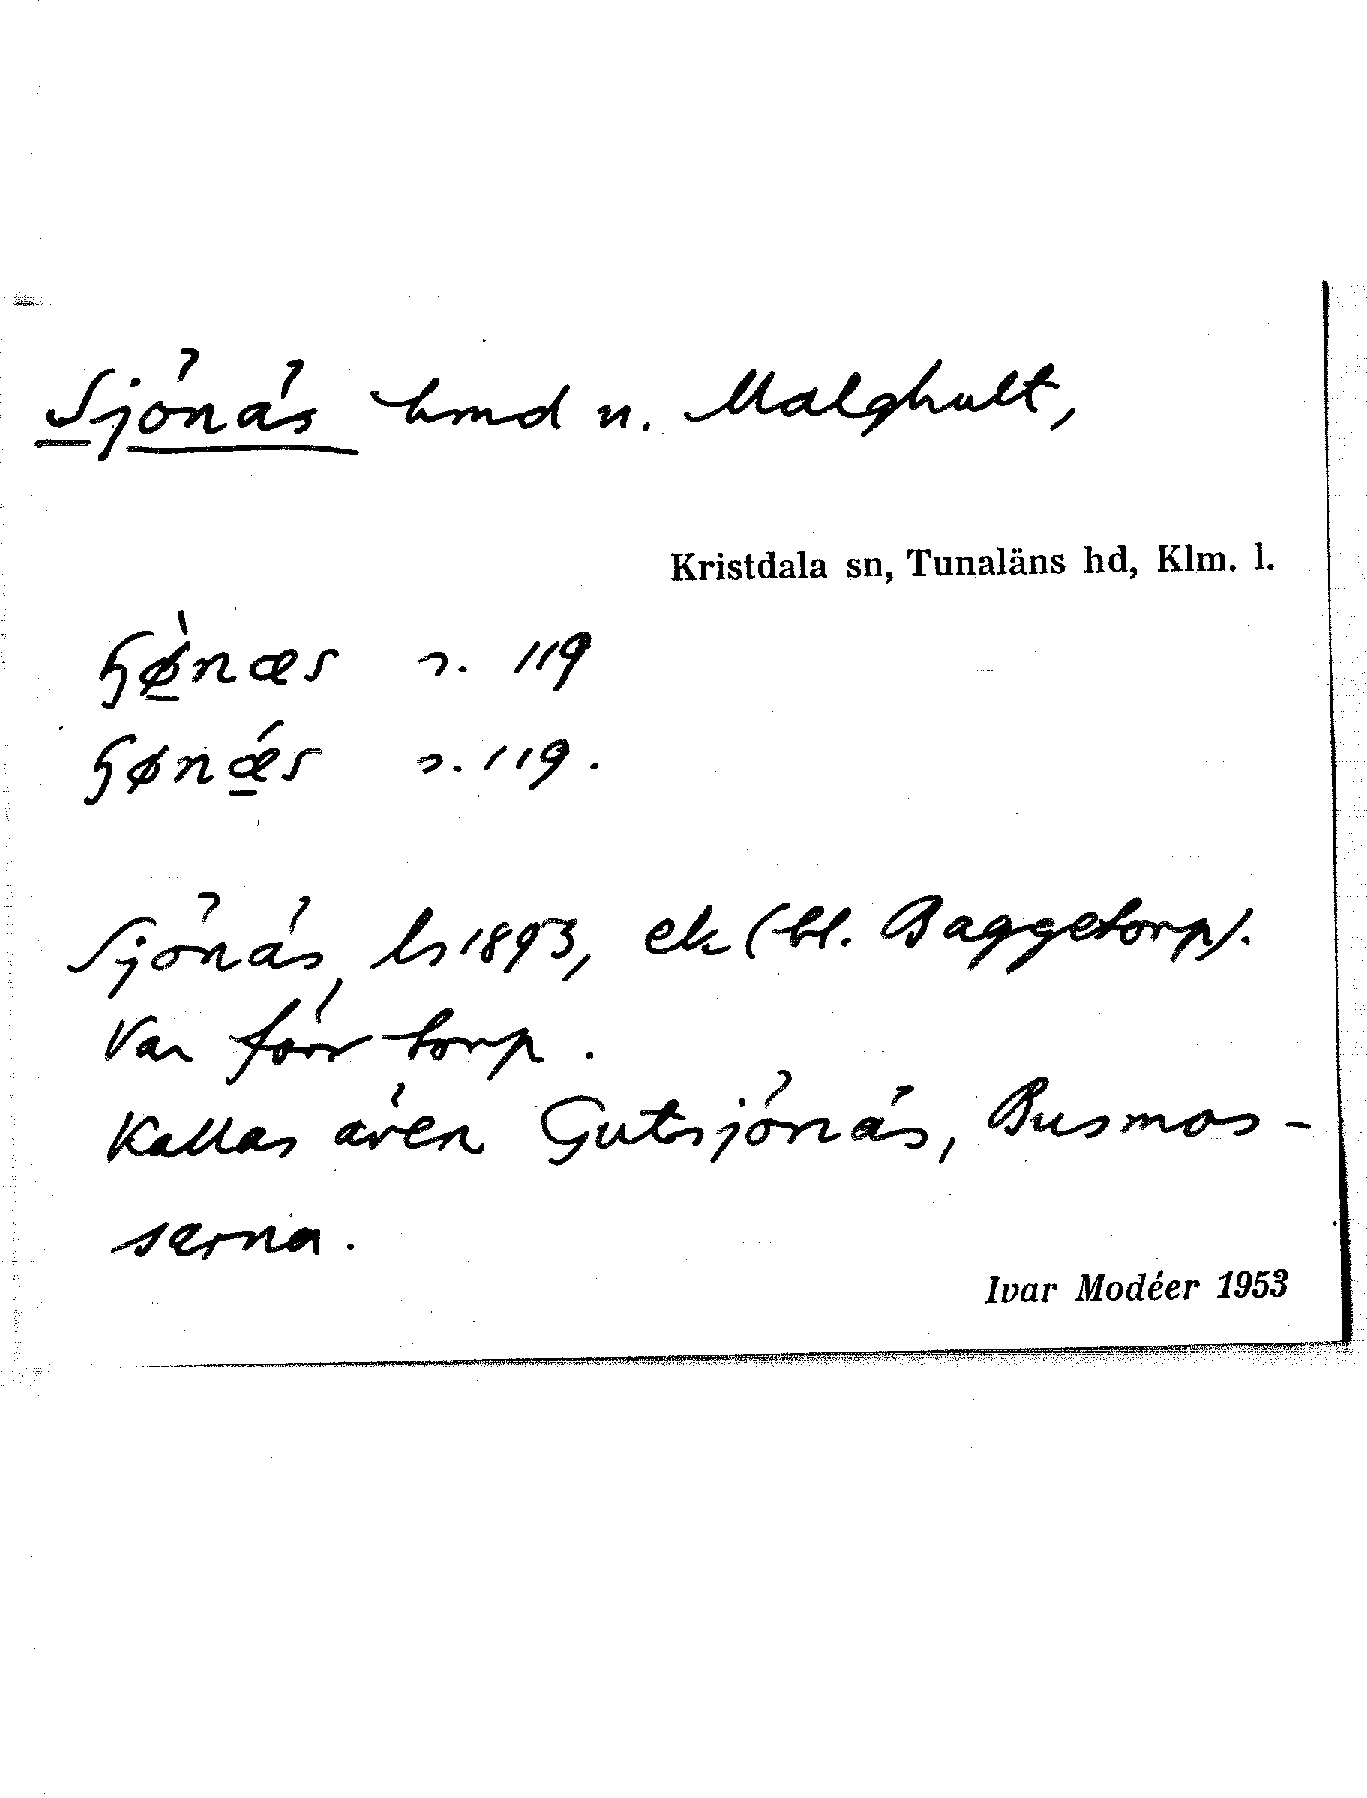 Sjönäs hmd u. Malghult,
Kristdala sn, Tunaläns hd, Klm. l.
ɧø̀næs s. 119
ɧønǽs s. 119.
Sjönäs, ls 1893, ek (bl. Baggetorp).
Var förr torp.
Kallas även Gutsjönäs, Busmos-
serna.
Ivar Modéer 1953